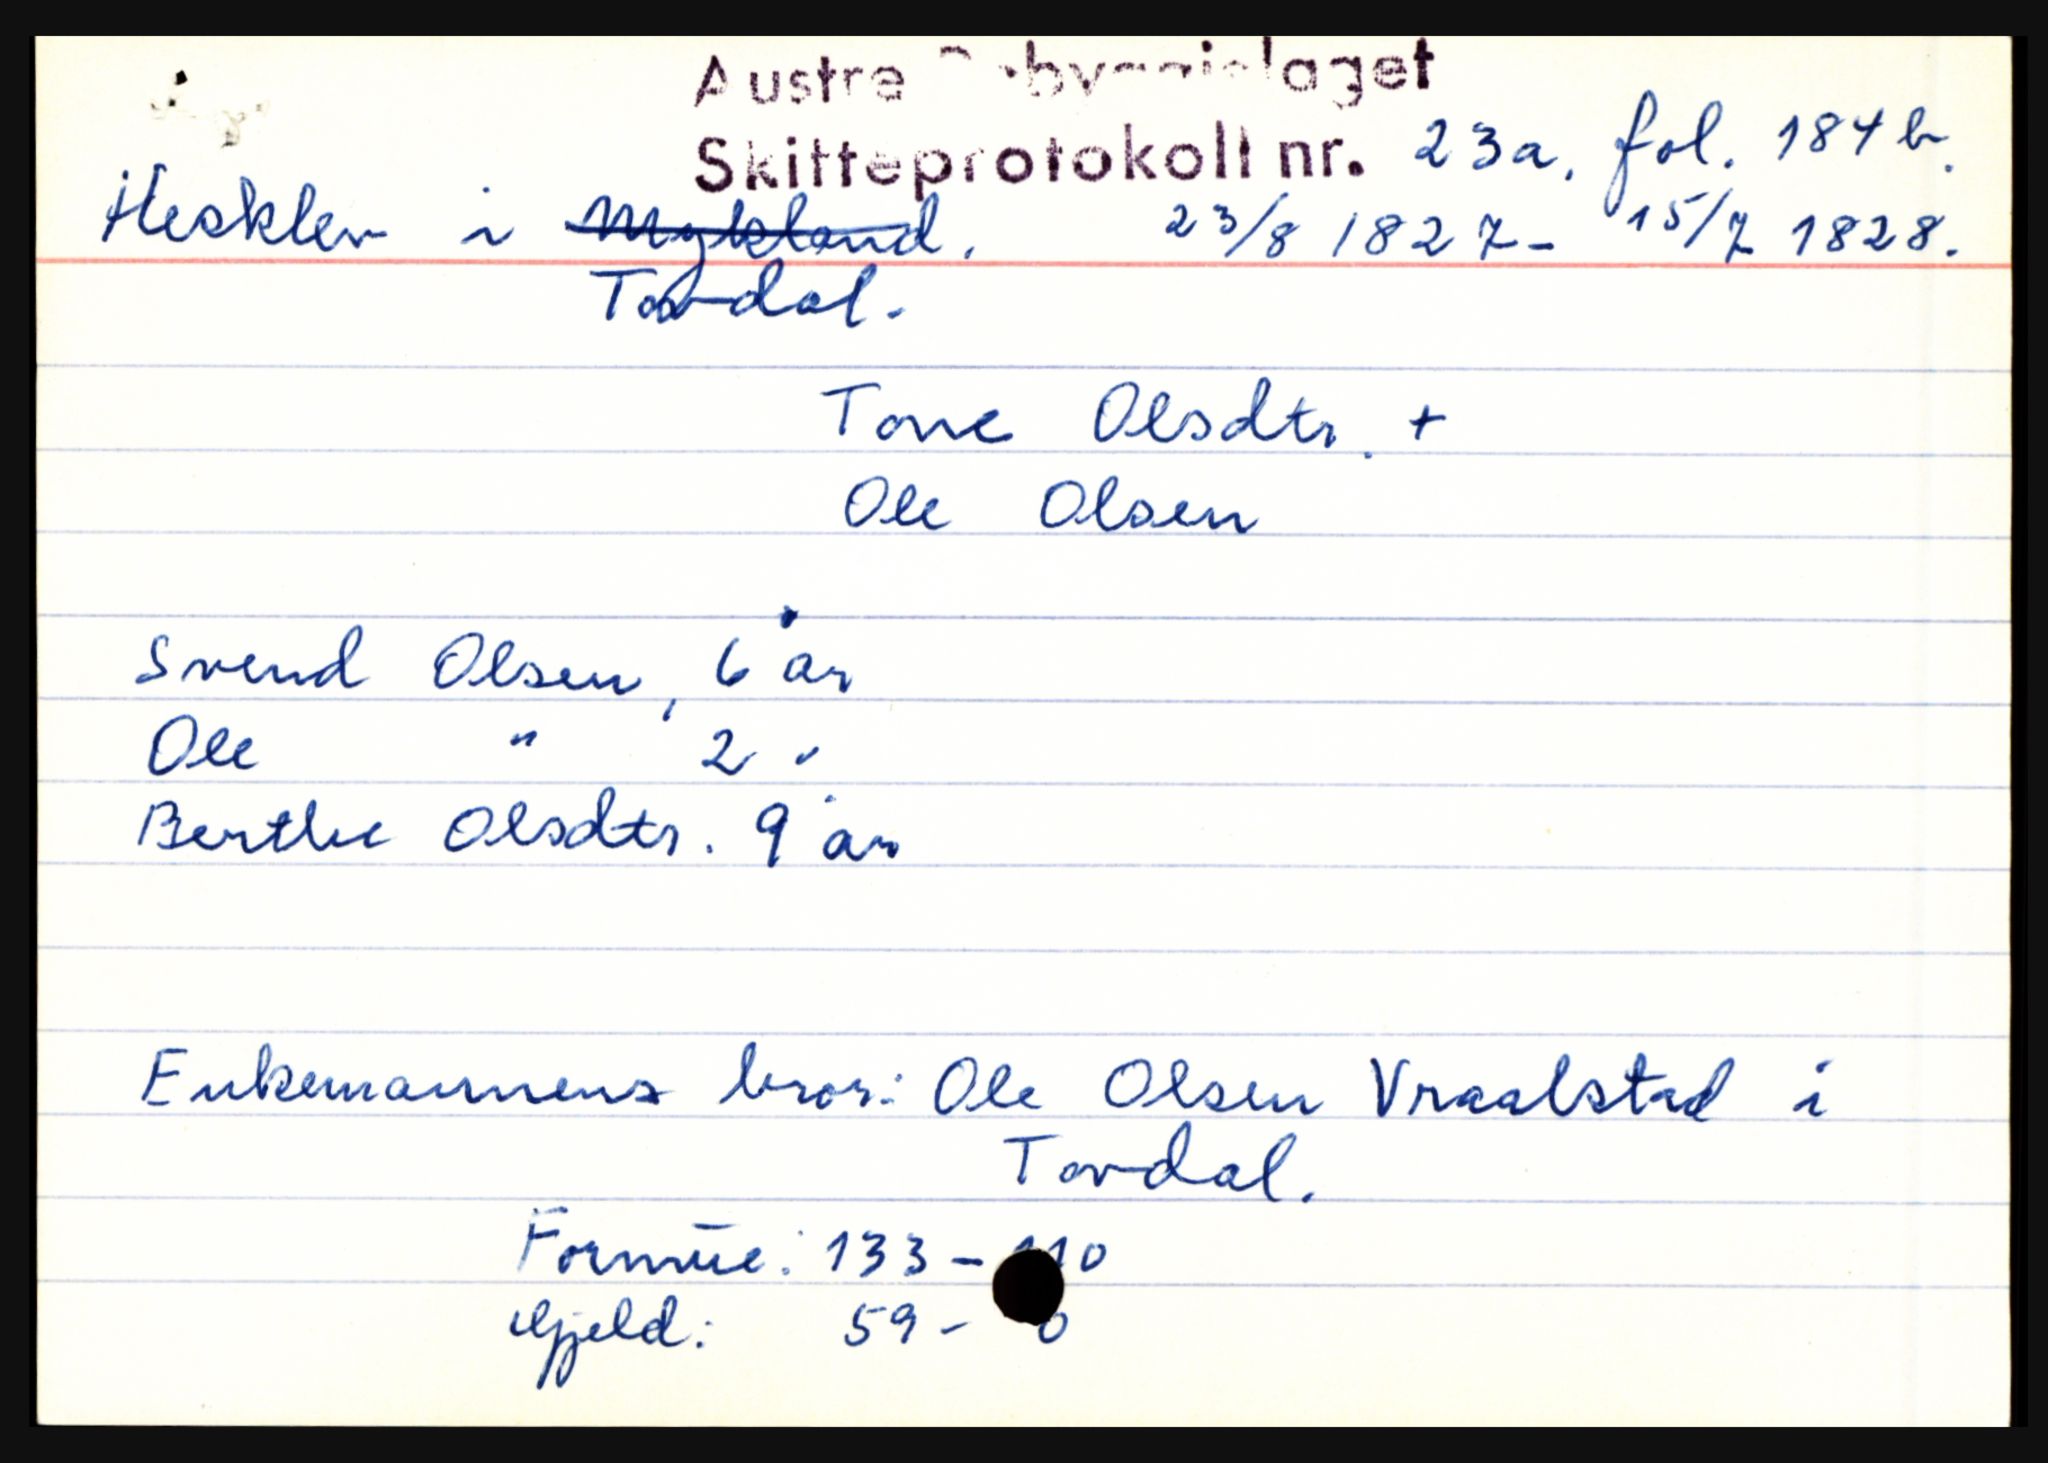 Austre laget
Skifteprotokoll nr. 23a, fol. 184b.
Hesklev i Mykland. 23/8 1827- 15/7 1828.
Tovdal.
Tone Olsdtr. +
Ole Olsen
Svend Olsen, 6 år
Ole " 2 "
Berthe Olsdtr. 9 år
Enkemannens bror: Ole Olsen Vraalstad i
Tovdal.
Formue: 133 -
Gjeld: 59 -